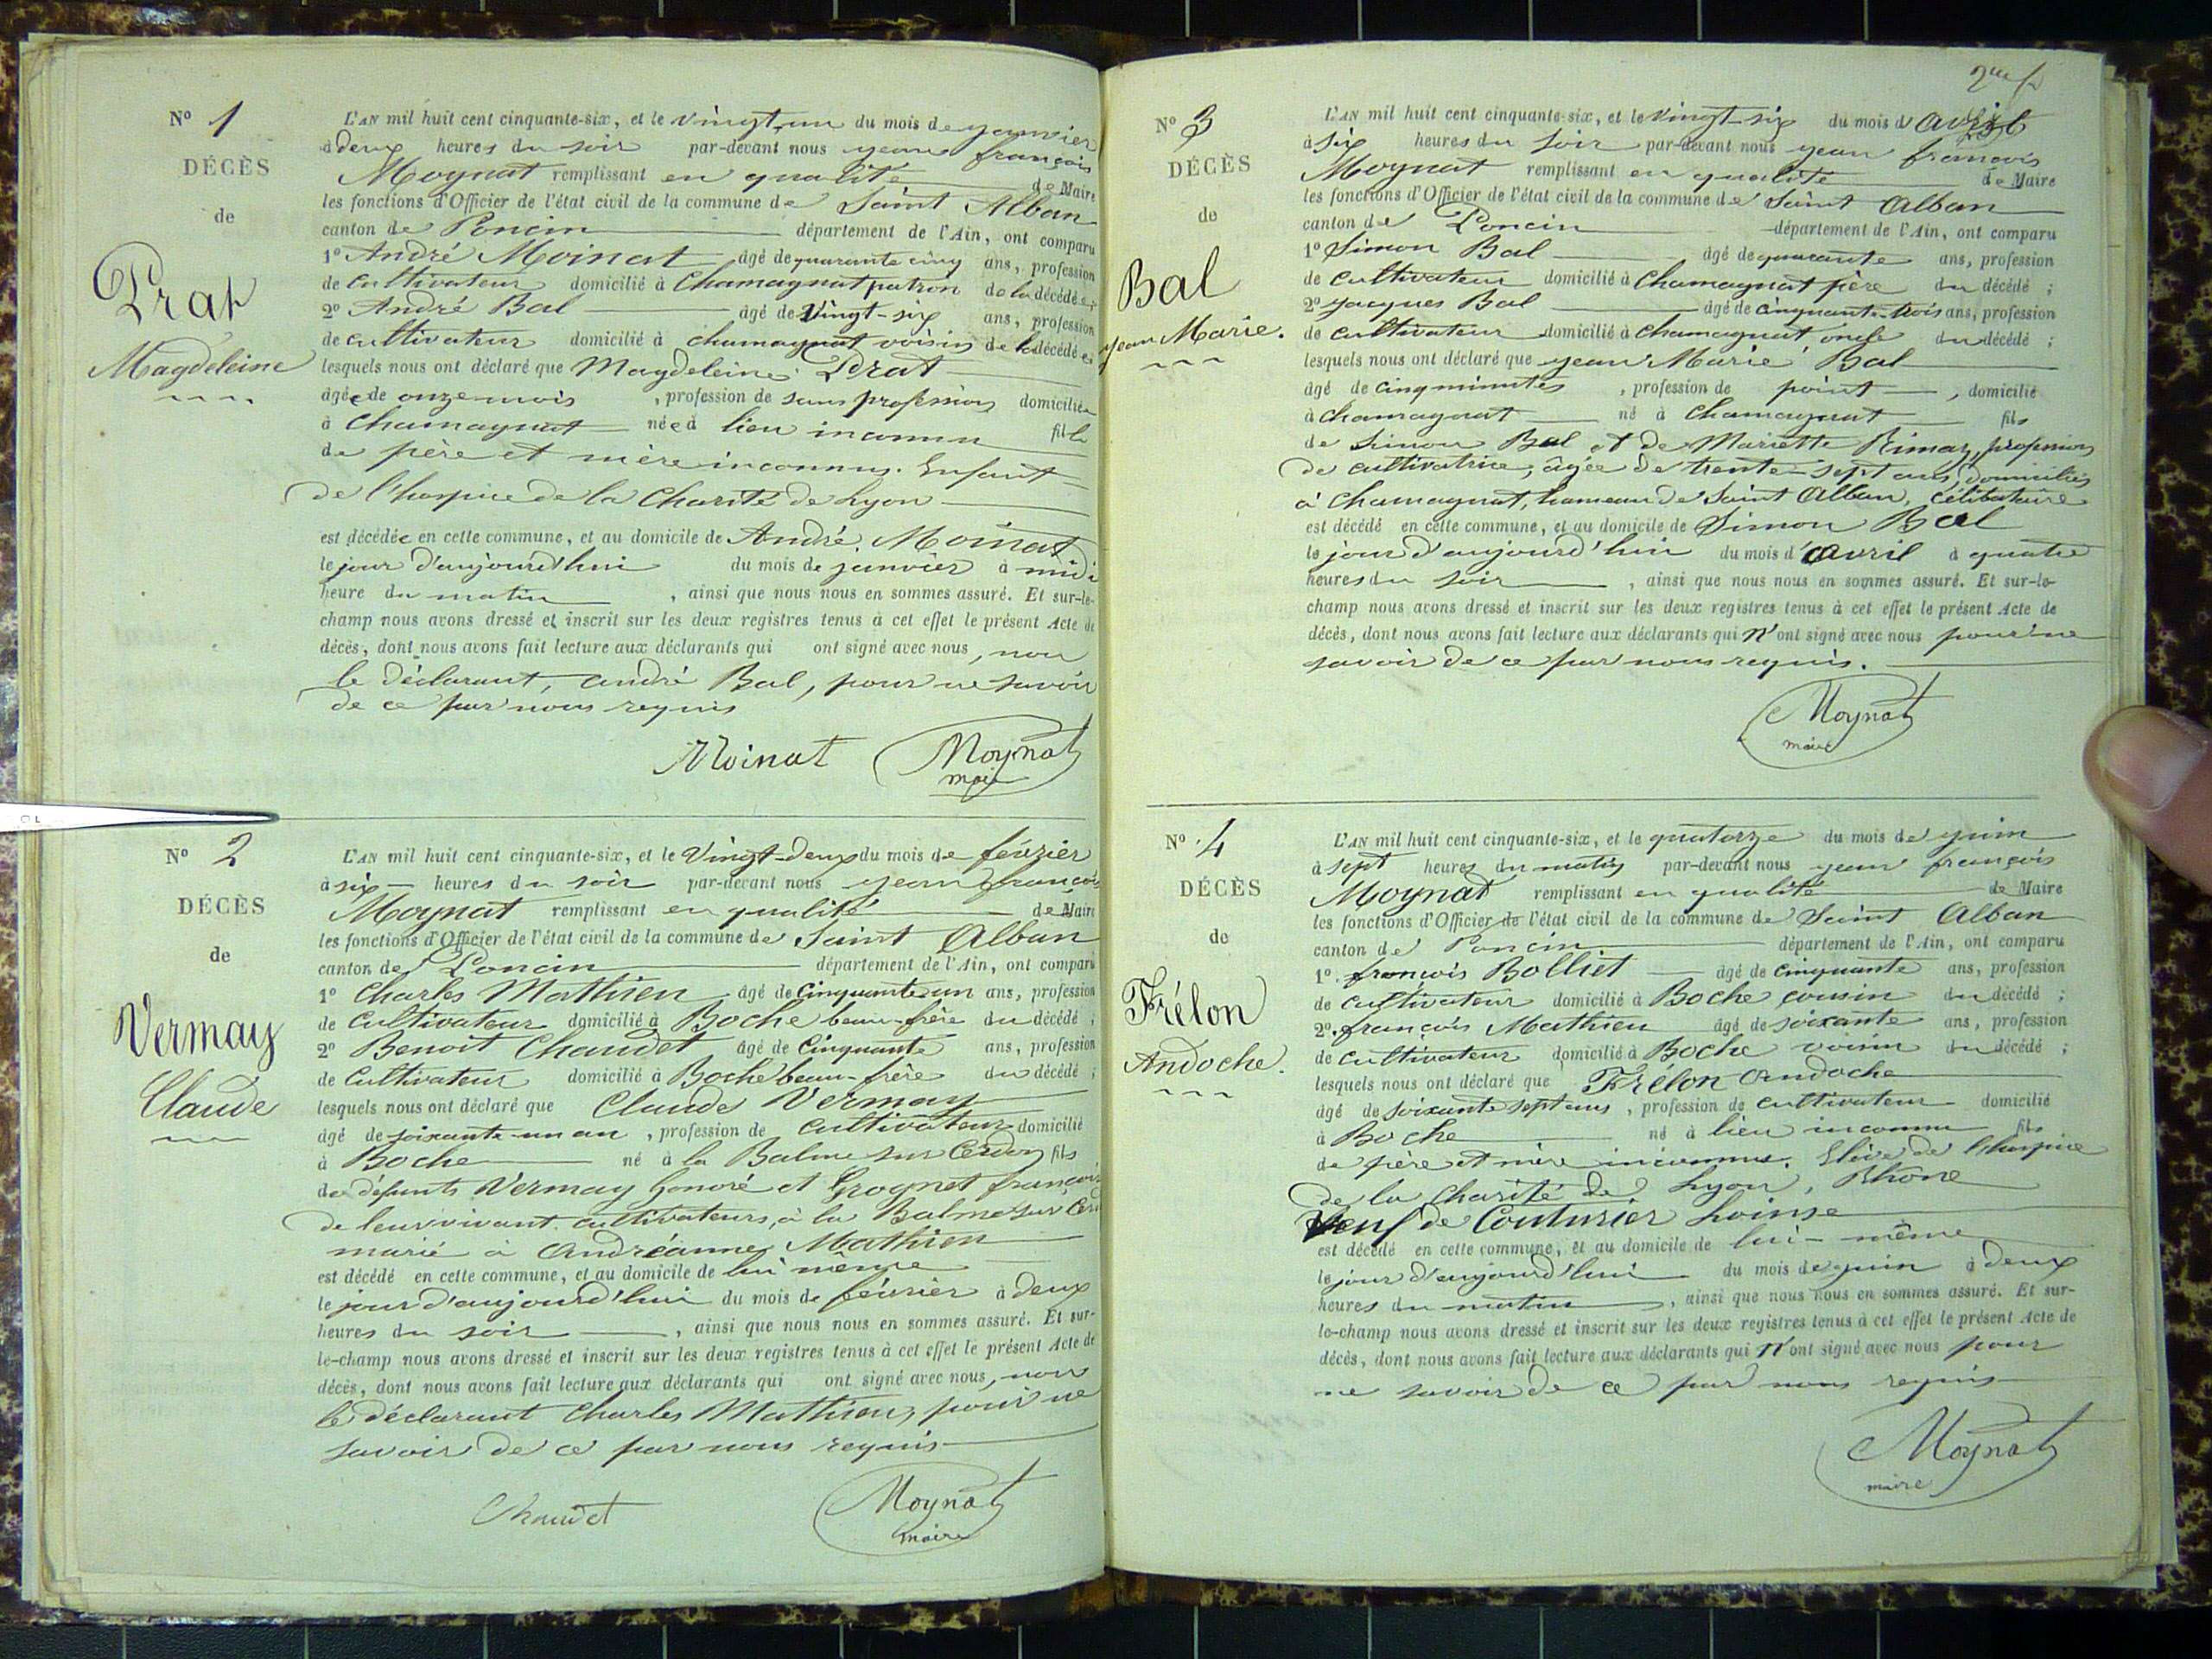 N° 1
DÉCÈS
de
Prat
Magdeleine
L'AN mil huit cent cinquante-six, et le vingt-un du mois de janvier
à deux heures du soir par-devant nous jean françois
Moynat remplissant en qualité de Maire
les fonctions d'Officier de l'état civil de la commune de Saint Alban
canton de Poncin département de l'Ain, ont comparu
1° André Moinat âgé de quarante cinq ans, profession
de cultivateur domicilié à Chamagnat patron de la décédée ;
2° André Bal âgé de vingt-six ans, profession
de cultivateur domicilié à chamagnat voisin de la décédée
lesquels nous ont déclaré que Magdeleine Prat
âgée de onze mois , profession de sans profession domiciliée
à Chamagnat née à lieu inconnu fille
de père et mère inconnus. Enfant
de l'hospice de la Charité de Lyon
est décédée en cette commune, et au domicile de André Moinat
le jour d'aujourd'hui du mois de janvier à midi
heure du matin , ainsi que nous nous en sommes assuré. Et sur-le-
champ nous avons dressé et inscrit sur les deux registres tenus à cet effet le présent Acte de
décès, dont nous avons fait lecture aux déclarants qui ont signé avec nous, non
le déclarant, andré Bal, pour ne savoir
de ce par nous requis
Moinat Moynat
maire
N° 2
DÉCÈS
de
Vermay
Claude
L'AN mil huit cent cinquante-six, et le vingt-deux du mois de février
à six heures du soir par-devant nous jean françois
Moynat remplissant en qualité de Maire
les fonctions d'Officier de l'état civil de la commune de Saint Alban
canton de Poncin département de l'Ain, ont comparu
1° Charles Mathieu âgé de cinquante un ans, profession
de cultivateur domicilié à Boche beau-frère du décédé ;
2° Benoit Chaudet âgé de cinquante ans, profession
de cultivateur domicilié à Boche beau-frère du décédé ;
lesquels nous ont déclaré que Claude Vermay
âgé de soixante-un an , profession de cultivateur domicilié
à Boche né à la Balme sur Cerdon fils
de défunts Vermay honoré et Grognet françoise
de leur vivant cultivateurs, à la Balme sur Cerd
marié à Andréanne Mathieu
est décédé en cette commune, et au domicile de lui même
le jour d'aujourd'hui du mois de février à deux
heures du soir , ainsi que nous nous en sommes assuré. Et sur-
le-champ nous avons dressé et inscrit sur les deux registres tenus à cet effet le présent Acte de
décès, dont nous avons fait lecture aux déclarants qui ont signé avec nous, non
le déclarant Charles Mathieu, pour ne
savoir de ce par nous requis
Chaudet Moynat
maire
N° 3
DÉCÈS
de
Bal
jean Marie.
L'AN mil huit cent cinquante-six, et le vingt-six du mois d'avril
à six heures du soir par-devant nous jean francois
Moynat remplissant en qualité de Maire
les fonctions d'Officier de l'état civil de la commune de Saint Alban
canton de Poncin département de l'Ain, ont comparu
1° Simon Bal âgé de quarante ans, profession
de cultivateur domicilié à Chamagnat père du décédé ;
2° jacques Bal âgé de cinquante-trois ans, profession
de cultivateur domicilié à chamagnat oncle du décédé ;
lesquels nous ont déclaré que jean Marie Bal
âgé de cinq minutes , profession de point , domicilié
à chamagnat né à Chamagnat fils
de Simon Bal et de Mariette Rimaz, profession
de cultivatrice, âgée de trente-sept ans, domiciliés
à Chamagnat, hameau de Saint Alban, célibataire
est décédé en cette commune, et au domicile de Simon Bal
le jour d'aujourd'hui du mois d'avril à quatre
heures du soir , ainsi que nous nous en sommes assuré. Et sur-le-
champ nous avons dressé et inscrit sur les deux registres tenus à cet effet le présent Acte de
décès, dont nous avons fait lecture aux déclarants qui n'ont signé avec nous pour ne
savoir de ce par nous requis.
Moynat
maire
N° 4
DÉCÈS
de
Frélon
Andoche.
L'AN mil huit cent cinquante-six, et le quatorze du mois de juin
à sept heures du matin par-devant nous jean françois
Moynat remplissant en qualité de Maire
les fonctions d'Officier de l'état civil de la commune de Saint Alban
canton de Poncin département de l'Ain, ont comparu
1°. françois Bolliet âgé de cinquante ans, profession
de cultivateur domicilié à Boche cousin du décédé ;
2°. françois Mathieu âgé de soixante ans, profession
de cultivateur domicilié à Boche voisin du décédé ;
lesquels nous ont déclaré que Frélon andoche
âgé de soixante sept ans , profession de cultivateur domicilié
à Boche né à lieu inconnu fils
de père et mère inconnus. Elève de l'hospice
de la Charité de Lyon, Rhône
Veuf de Couturier Louise
est décédé en cette commune, et au domicile de lui-même
le jour d'aujourd'hui du mois de juin à deux
heures du matin , ainsi que nous nous en sommes assuré. Et sur-
le-champ nous avons dressé et inscrit sur les deux registres tenus à cet effet le présent Acte de
décès, dont nous avons fait lecture aux déclarants qui n'ont signé avec nous pour
ne savoir de ce par nous requis
Moynat
maire